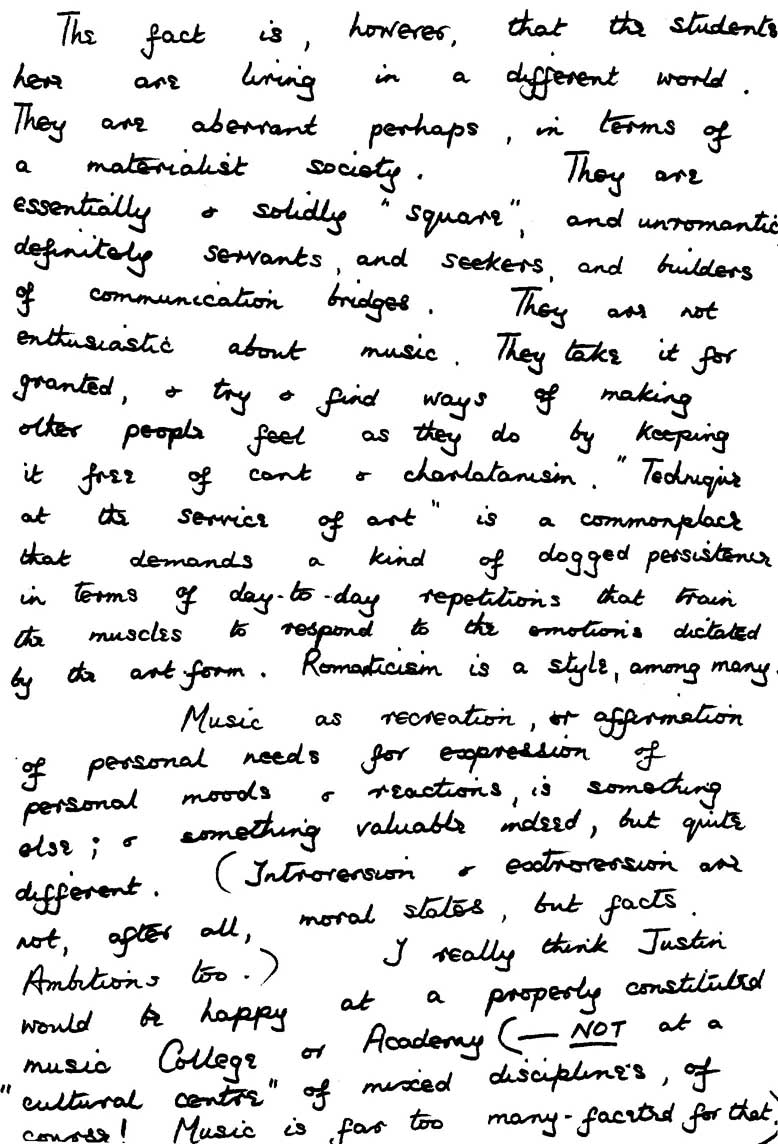 The fact is, however, that the students
here are living in a different world.
They are aberrant perhaps, in terms of
a materialist society. They are
essentially & solidly "square", and unromantic,
definitely servants, and seekers, and builders
of communication bridges. They are not
enthusiastic about music. They take it for
granted, & try & find ways of making
other people feel as they do by keeping
it free of cant & charlatanism. "Technique
at the service of art" is a commonplace
that demands a kind of dogged persistence
in terms of day-to-day repetitions that train
the muscles to respond to the emotions dictated
by the art-form. Romanticism is a style, among many.
Music as recreation, or affirmation
of personal needs for expression of
personal moods & reactions, is something
else; & something valuable indeed, but quite
different. (Introversion & extroversion are
not, after all, moral states, but facts.
Ambitions too.) I really think Justin
would be happy at a properly constituted
music College or Academy (— NOT at a
"cultural centre" of mixed disciplines, of
course! Music is far too many-faceted for that)